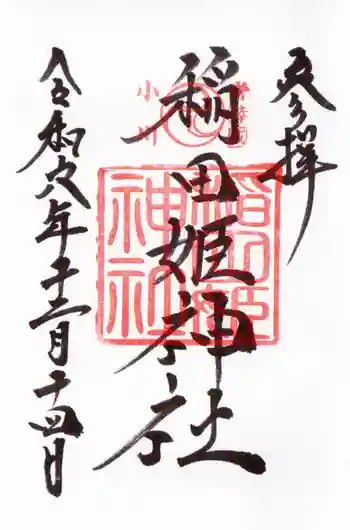 奉拝
稲田姫神社
令和六年十二月十四日
小川
稲田姫
神社